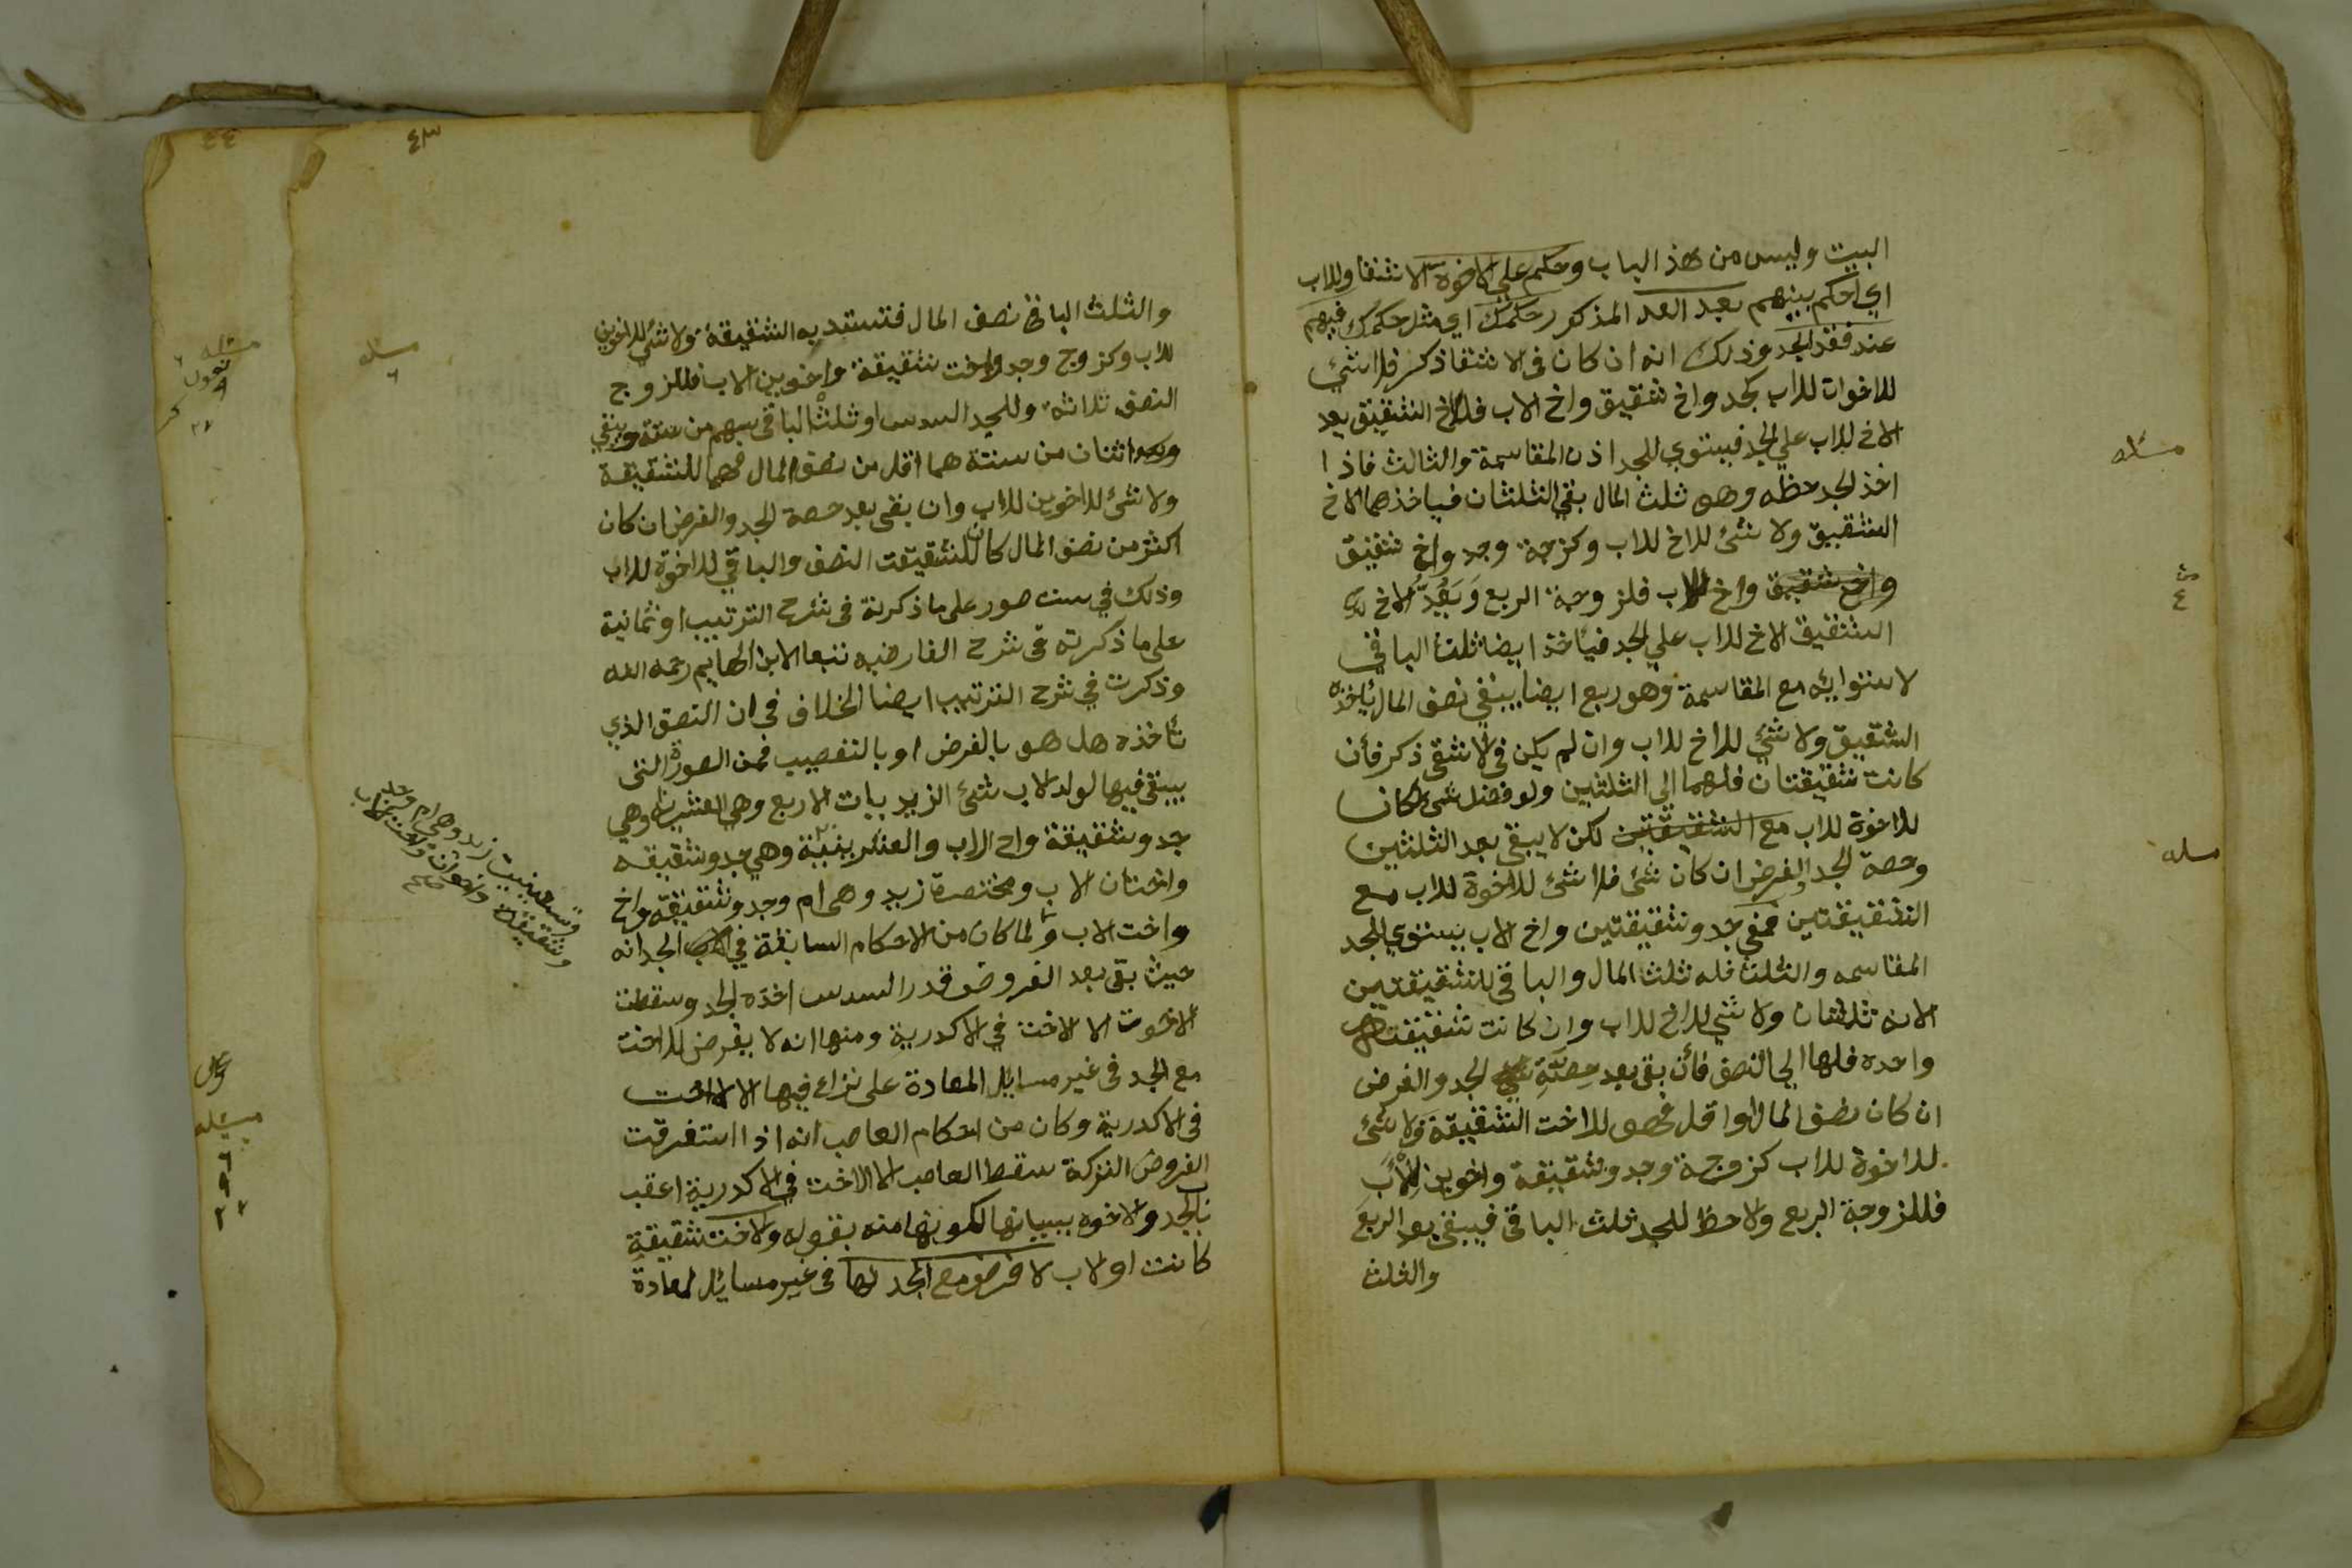 البيت وليس من هذ الباب وحكم على الاخوه الاشقا وللاب
اي احكم بينهم بعد العد المذكور حكمك اي مثل حكمك فيهم
عند فقد الجد وذلك انه ان كان فى الاشقا ذكر فلا شئي
للاخوات للاب كجد واخ شقيق واخ لاب فللاخ الشقيق يعد
الاخ للاب علي الجد فيستوي للجد اذن المقاسمة والثالث فاذا
اخذ الجد حظه وهو ثلث المال بقي الثلثان فياخذهما الاخ
الشقيق ولا شئ للاخ للاب وكزوجة وجد واخ شقيق
واخ شقيق واخ لاب فلزوجة الربع وَيَعُدُّ الاخ
الشقيق الاخ للاب علي الجد فياخذ ايضا ثلث الباقي
لاستوائه مع المقاسمة وهو ربع ايضا يبقي نصف المال ياخذه
الشقيق ولا شئي للاخ للاب وان لم يكن في الاشقى ذكر فأن
كانت شقيقتان فلهما الى الثلثين ولو فضل شئ لكان
للاخوة للاب مع الشقيقتين لكن لا يبقى بعد الثلثين
وحصة الجد والفرض ان كان شئ فلا شئ للاخوة للاب مع
الشقيقتين ففي جد وشقيقتين واخ لاب يستوي للجد
المقاسمه والثلث فله ثلث المال والباقي للشقيقتين
لانه ثلثان ولا شئي للاخ للاب وان كانت شقيقت
واحده فلها الي النصف فأن بقى بعد حِصَّةِ الجد والفرض
ان كان نصف المال او اقل فهو للاخت الشقيقة ولا شئ
للاخوة للاب كزوجة وجد وشقيقة واخوين لِلْأَبَ
فللزوجة الربع والاحظ للجد ثلث الباقي فيبقي بعد الربع
والثلث
مسئله
مسله
٤٣
والثلث الباقي نصف المال فتستبد به الشقيقة ولا شئي للاخوين
للاب وكزوج وجد واخت شقيقة واخوين لاب فللزوج
النصف ثلاثة وللجد السدس او ثلث الباقي سهم من ستة ويبقي
اثنان من ستة هما اقل من نصف المال فهما للشقيقة
ولا شئ للاخوين للاب وان بقى بعد حصة الجد والفرض ان كان
اكثر من نصف المال كان للشقيقت النصف والباقي للاخوة للاب
وذلك في ست صور على ما ذكرته فى شرح الترتيب او ثمانية
على ما ذكرته فى شرح الفارضيه تبعا لابن الهايم رحمه الله
وذكرت في شرح الترتيب ايضا الخلاف في ان النصف الذي
تأخذه هل هو بالفرض او بالتعصيب فمن الصورة التى
يبقي فيها لولد الاب شئ الزيديات الاربع وهي العشريه وهي
جد وشقيقة واخ لاب والعشرينيّة وهي جد وشقيقه
واختان لاب ومختصرة زيد وهى ام وجد وشقيقة واخ
واخت لاب ولما كان من الاحكام السابقة في الجد انه
حيث بقى بعد الفروض قدر السدس اخذه الجد وسقطت
الاخوت الا الاخت في الاكدرية ومنها انه لا يفرض للاخت
مع الجد فى غير مسايل المعادة على نزاع فيها الا الاخت
فى الاكدرية وكان من احكام العاصب انه اذا استغرقت
الفروض التركة سقط العاصب الا الاخت في الاكدرية اعقب
باب الجد والاخوه ببيانها لكونها منه بقوله والاخت شقيقة
كانت او لاب لا فرض مع الجد لها فى غير مسائل لمعادة
وتسعينيت زيد وهي ام وجد
وشقيقة واخوان واخت لاب
صح
مسئله
٦
٤٤
مسئله
تعول
٢٧
مسئله